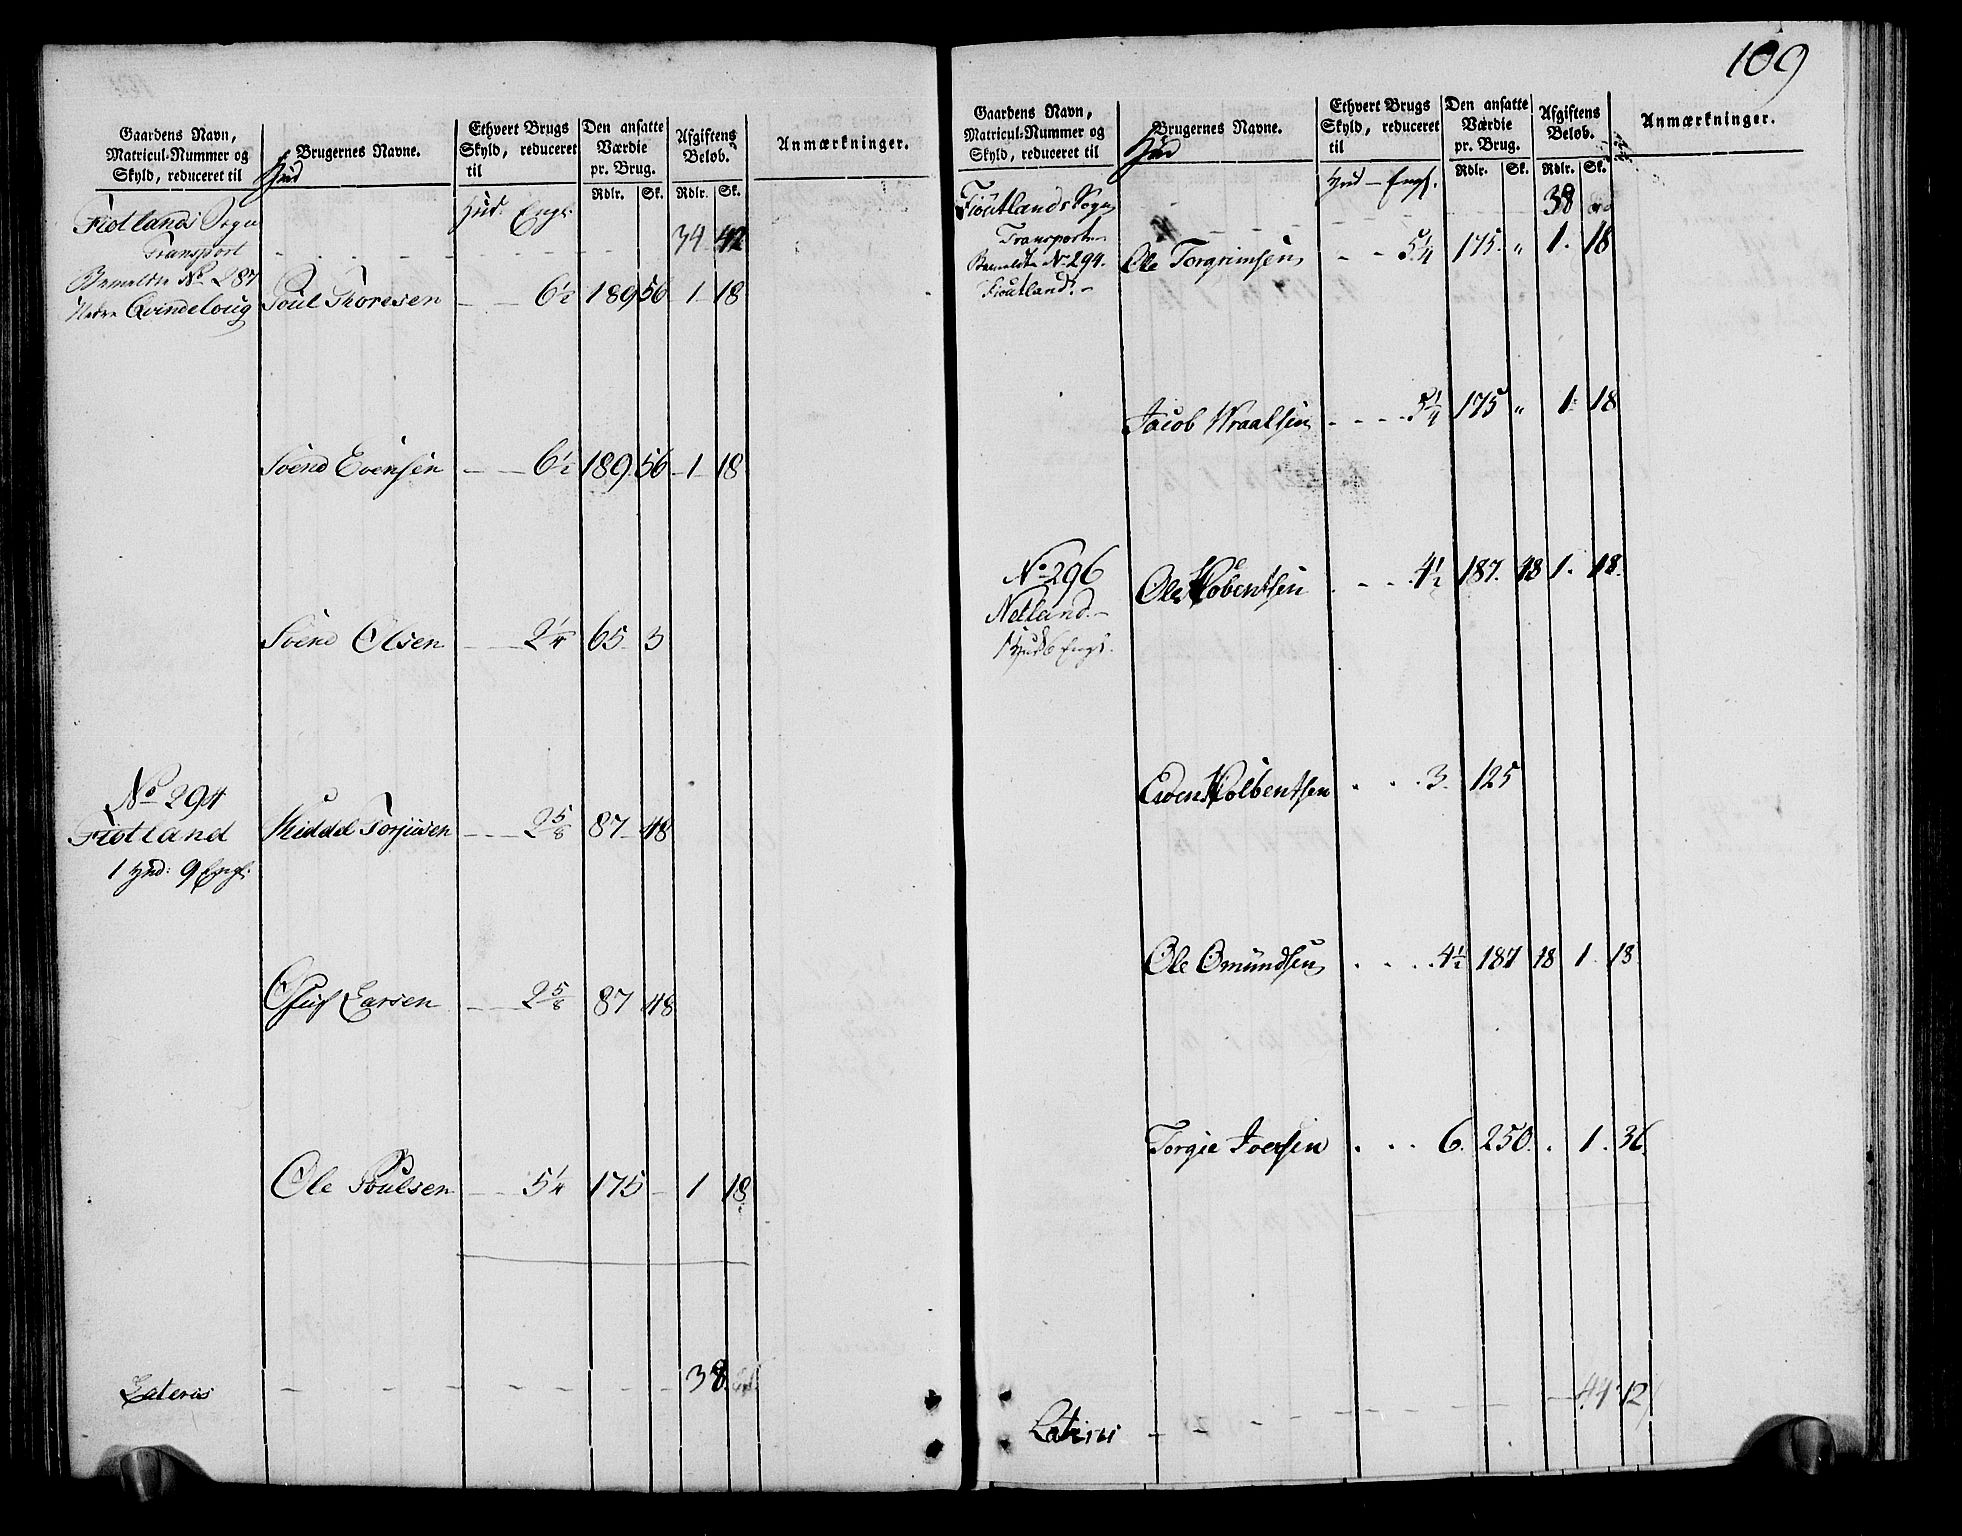 Gaardens Navn,
Matricul-Nummer og
Skyld, reduceret til
Hud
Brugernes Navne.
Ethvert Brugs
Skyld, reduceret
til
Den ansatte
Værdie
pr. Brug.
Rdlr. Sk.
Afgiftens
Beløb.
Rdlr. Sk.
Anmærkninger.
Fiotlands Sogn
Hud. Engl.
Transport - - - - - - 34 42
Bemeldte No. 287
Qvindeloug Poul Thoresen - - 6½ 189 56 - 1 - 18
Svend Evensen - - 6½ 189. 56 - 1 - 18
Svend Olsen - - 2¼ 65. 3
No 294
Fiotland Torjusen - - - 2⅝ 87 - 48
1 Hud: 9 Engl:
Larsen - - - 2⅝ 87 48
Ole Poulsen - - 5¼ 175 - 1 18
Lateris - - - - - - - 38.
109
Gaardens Navn,
Matricul-Nummer og
Skyld, reduceret til
Hud
Brugernes Navne.
Ethvert Brugs
Skyld, reduceret
til
Den ansatte
Værdie
pr. Brug.
Rdlr. Sk.
Afgiftens
Beløb.
Rdlr. Sk.
Anmærkninger.
Fioutlands Sogn
Hud - Engl.
Transport - - - - - 38
Bemeldte No 294.
Fioutland. -
Ole Torgrimsen - - 5¼ 175. „ 1. 18
Jacob Wraalsen - - - 5¼ 175 „ 1. 18
No 296
Netland. -
1 Hud 6 Engl.
Ole - - - 4½ 187. 48 1. 18.
- - - 3. 125
Ole Omundsen - - - 4½ 187 18 1. 18
Torgie Iversen - - - 6. 250. . 1. 36.
Lateris - - - - - - - 44 12